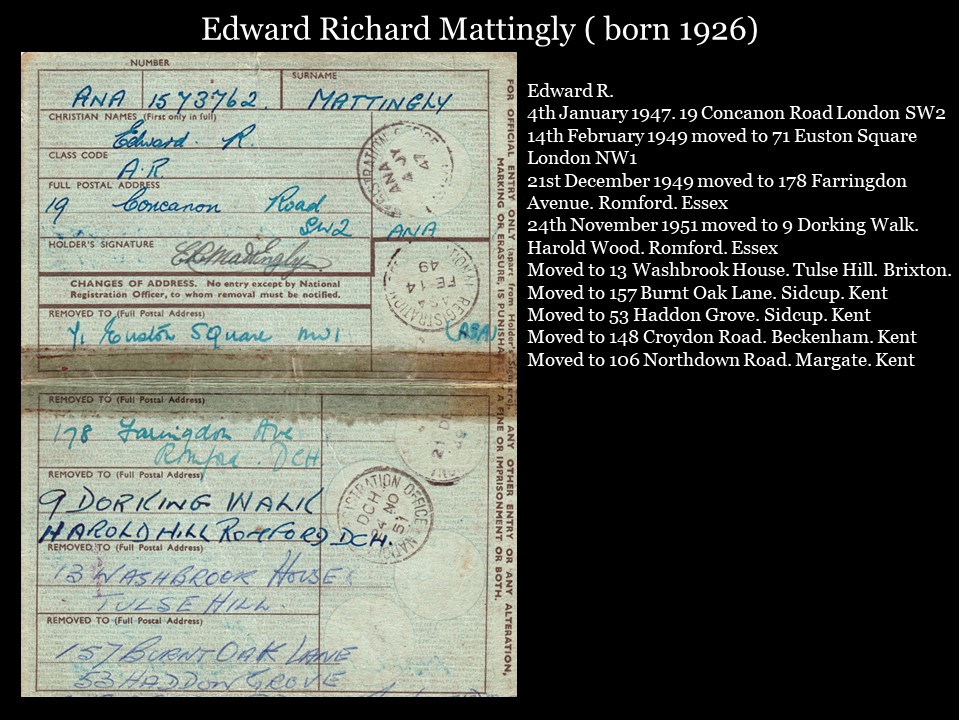 Edward Richard Mattingly ( born 1926)
NUMBER
SURNAME
ANA 1573762. MATTINGLY
CHRISTIAN NAMES (First only in full)
Edward. R.
CLASS CODE
A.R.
FULL POSTAL ADDRESS
19 Concanon Road
SW2
ANA
HOLDER'S SIGNATURE
ERMattingly
CHANGES OF ADDRESS. No entry except by National
Registration Officer, to whom removal must be notified.
REMOVED TO (Full Postal Address)
71 Euston Square NW1
REMOVED TO (Full Postal Address)
178 Farringdon Ave
Romford. DCH
REMOVED TO (Full Postal Address)
9 DORKING WALK
HAROLD HILL ROMFORD DCH.
REMOVED TO (Full Postal Address)
13 WASHBROOK HOUSE
TULSE HILL.
REMOVED TO (Full Postal Address)
157 BURNT OAK LANE
53 HADDON GROVE
REGISTRATION OFFICE
ANA
4 JY
47
FE 14
49
21 DE
49
REGISTRATION OFFICE
DCH
24 NO
51
NATIONAL
FOR OFFICIAL ENTRY ONLY (apart from Holder's Signature), ANY OTHER ENTRY OR ANY ALTERATION,
MARKING OR ERASURE, IS PUNISHABLE BY A FINE OR IMPRISONMENT OR BOTH.
Edward R.
4th January 1947. 19 Concanon Road London SW2
14th February 1949 moved to 71 Euston Square
London NW1
21st December 1949 moved to 178 Farringdon
Avenue. Romford. Essex
24th November 1951 moved to 9 Dorking Walk.
Harold Wood. Romford. Essex
Moved to 13 Washbrook House. Tulse Hill. Brixton.
Moved to 157 Burnt Oak Lane. Sidcup. Kent
Moved to 53 Haddon Grove. Sidcup. Kent
Moved to 148 Croydon Road. Beckenham. Kent
Moved to 106 Northdown Road. Margate. Kent